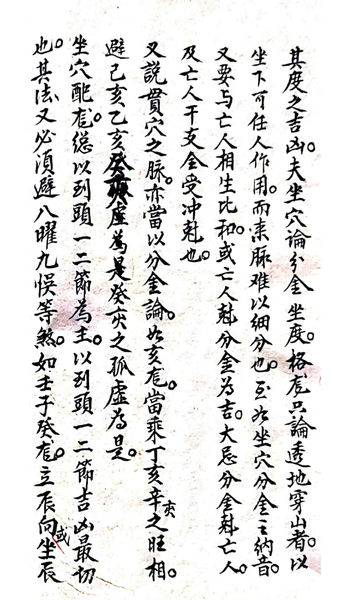 其度之吉凶。夫坐穴論分金坐度。格龙只論透地穿山者。以
坐下可任人作用。而來脉難以細分也。至於坐穴分金之納音。
又要与亡人相生比和。或亡人尅分金為吉。大忌分金尅亡人。
及亡人干支金受冲尅也。
又說貫穴之脉。亦當以分金論。如亥龙。當乘丁亥辛亥之旺相。
避己亥乙亥癸亥虛為是癸亥之孤虛為是。
坐穴配龙。總以到頭一二節為主。以到頭一二節吉凶最切
也。其法又必須避八曜九悞等煞。如壬子癸龙。立辰向或坐辰